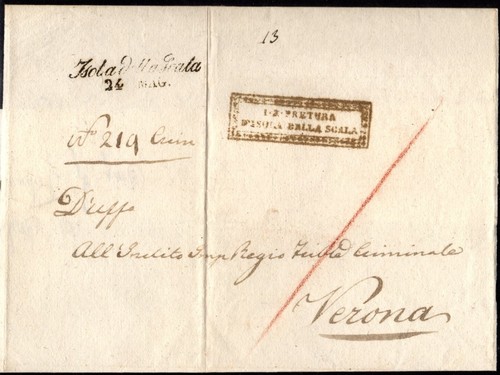 13
Isola della Scala
24 MAG.
I. R. PRETURA
D'ISOLA DELLA SCALA
N.o 219 Crim
D'uffo
All Inclito Imp Regio Trible Criminale
Verona